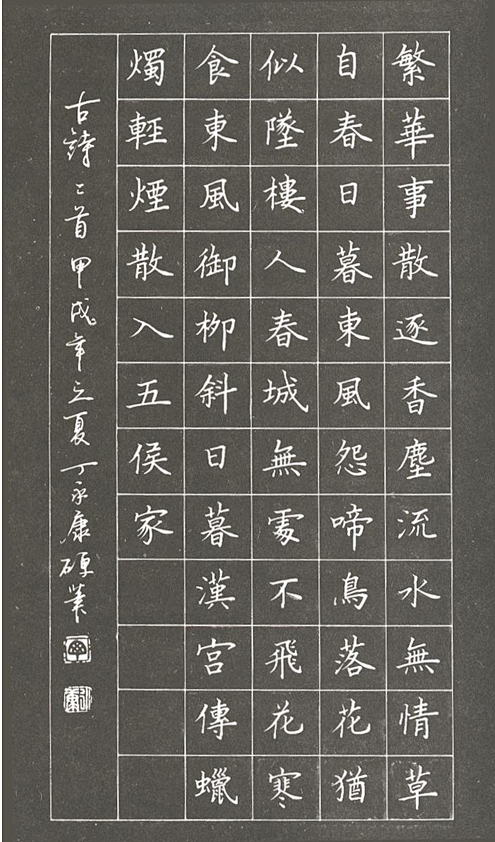 繁華事散逐香塵流水無情草
自春日暮東風怨啼鳥落花猶
似墜樓人春城無處不飛花寒
食東風御柳斜日暮漢宮傳蠟
燭輕煙散入五侯家
古詩二首甲戌年之夏丁永康硬筆